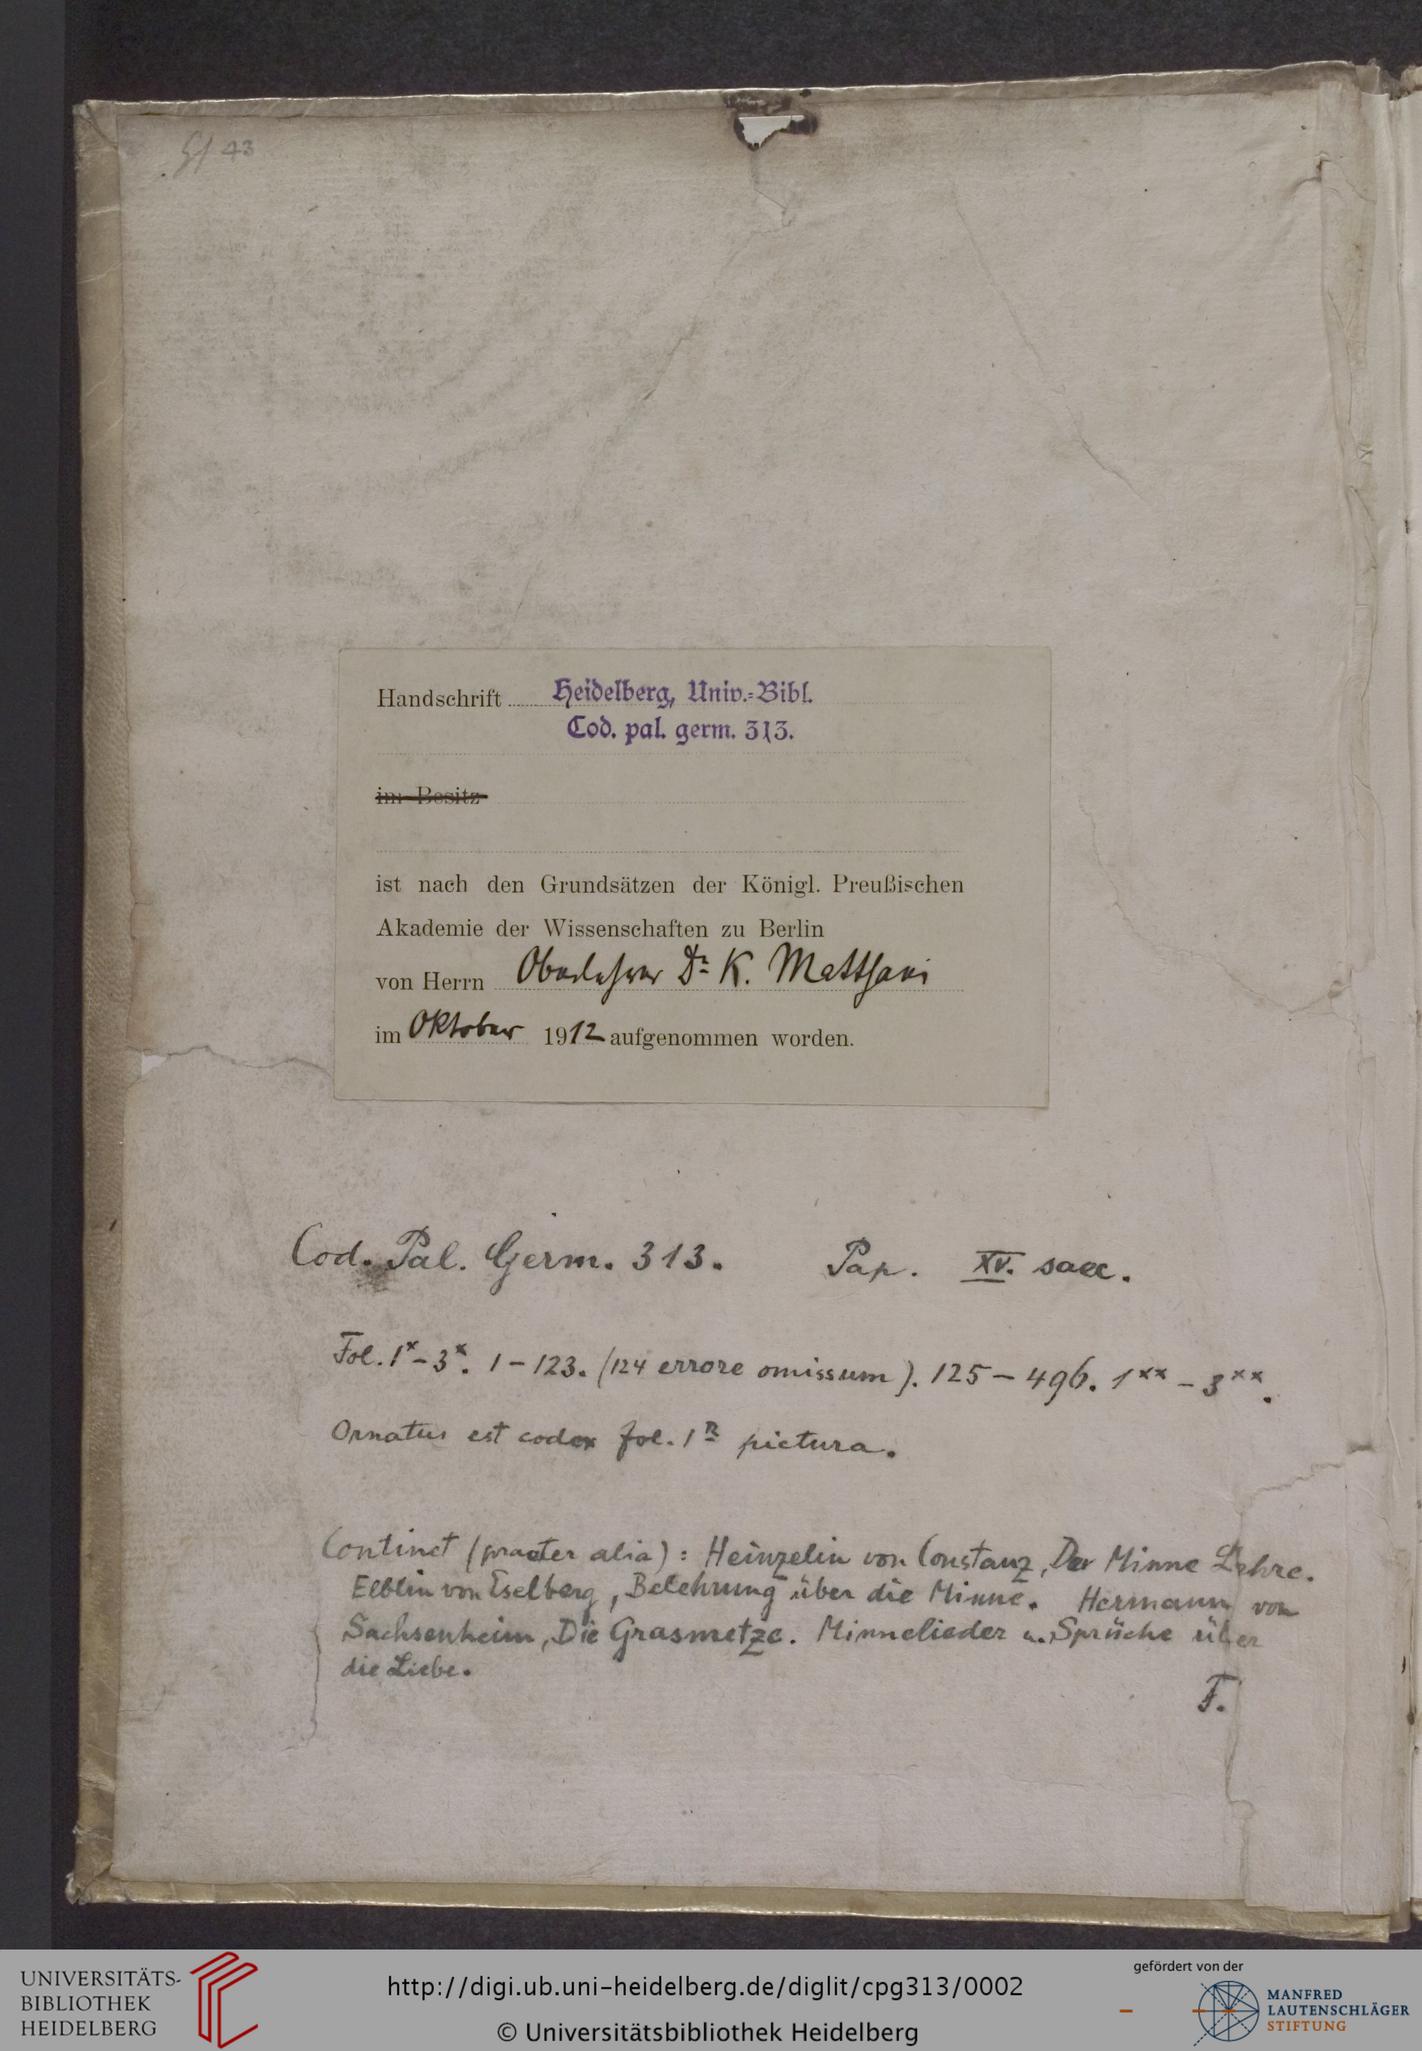 43
Handschrift Heidelberg, Univ.-Bibl.
Cod. pal. germ. 313.
im Besitz
ist nach den Grundsätzen der Königl. Preußischen
Akademie der Wissenschaften zu Berlin
von Herrn Oberlehrer Dr K. Matthaei
im Oktober 1912 aufgenommen worden.
Cod. Pal. Germ. 313. Pap. XV. saec.
Fol. 1x – 3x. 1 – 123. (124 errore omissum). 125 – 496. 1xx – 3xx.
Ornatus est codex fol. 1R pictura.
Continet (praeter alia): Heinzelin von Constanz, Der Minne Lehre.
Elblin von Eselberg, Belehrung über die Minne. Hermann von
Sachsenheim, Die Grasmetze. Minnelieder u. Sprüche über
die Liebe.
F.
UNIVERSITÄTS-
BIBLIOTHEK
HEIDELBERG
http://digi.ub.uni-heidelberg.de/diglit/cpg313/0002
© Universitätsbibliothek Heidelberg
gefördert von der
MANFRED
LAUTENSCHLÄGER
STIFTUNG